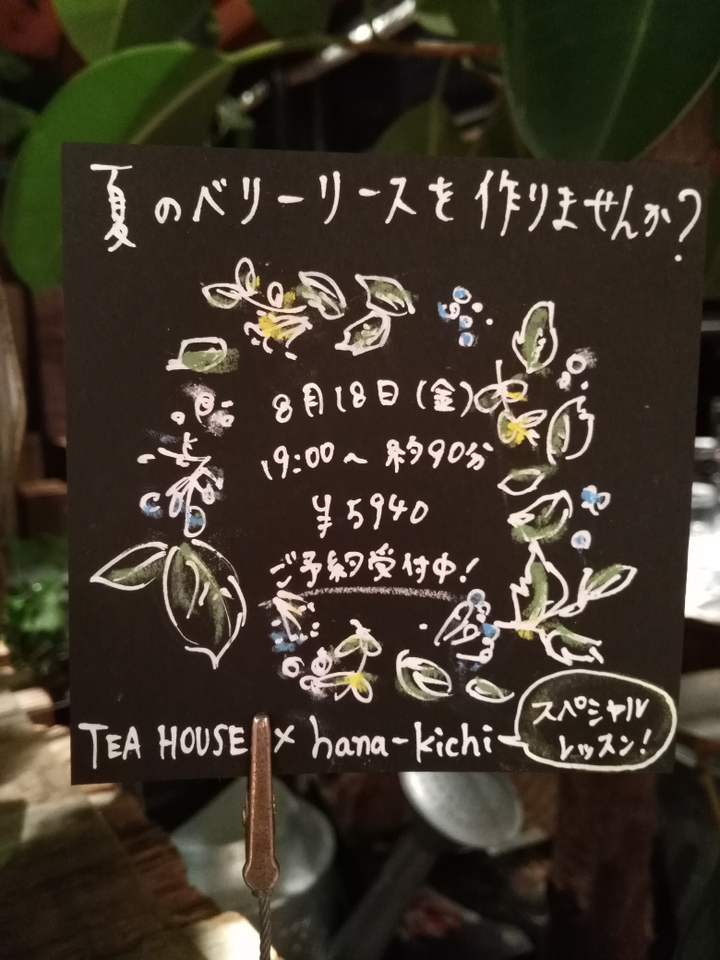 夏のベリーリースを作りませんか?
8月18日(金)
19:00~ 約90分
¥5940
ご予約受付中!
TEA HOUSE × hana-kichi
スペシャル
レッスン!